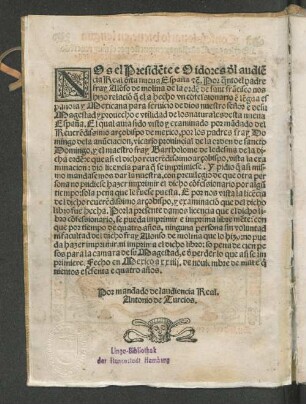 NOs el Presidẽte e Oidores ďl audiẽ
cia Real ďsta nueua España ⁊c̃. Por q̃nto el padre
fray Alõso de molina de la ordẽ de sant frãcisco nos
hizo relaciõ q̃ el a hecho vn cõfessionario ẽ lẽgua es
pañola y Mexicana pera seruicio de dios nuestro señor ⁊ de su
Magestad y prouecho ⁊ vtilidad de los naturales de esta nueua
España. El qual auia sido visto y examinado por mãdado del
Reuerẽdissimo arçobispo de mexico, por los padres fray Do
mingo de la anunciacion, vicario prouincial de la orden de sancto
Domingo, y el maestro fray Bartholome de ledesma de la
dicha ordẽ: q̃ assi el dicho reuerẽdissimo arçobispo, vista la exa
minacion: dio licencia para q̃ se imprimiesse. Y pidio q̃ assi mis
mo mandassemos dar la nuestra, con preuilegio de que otra perso
na no pudiesse hazer imprimir el dicho cõfessionario por algun
tiempo so la pena que le fuesse puesta. E por nos vista la licencia
de el dicho reuerẽdissimo arçobispo, y examinaciõ que del dicho
libro fue hecha. Por la presente damos licencia que el dicho li-
bro cõfessionario, se pueda imprimir e imprima libremẽte: con
que por tiempo de quatro años, ninguna persona sin voluntad
ni facultad del dicho fray Alonso de molina que lo hizo, no pue
da hazer imprimir ni imprima el dicho libro: so pena de cien pe
sos para la camara de su Magestad, e ď perder lo que assi se im
primiere. Fecho en Mexico a
de nouiembre de mil ⁊ q̃
nientos e sesenta e quatro años.
Por mandado de la audiencia Real.
Antonio de Turcios.
Linga-Bibliothek
der Hansestadt Hamburg